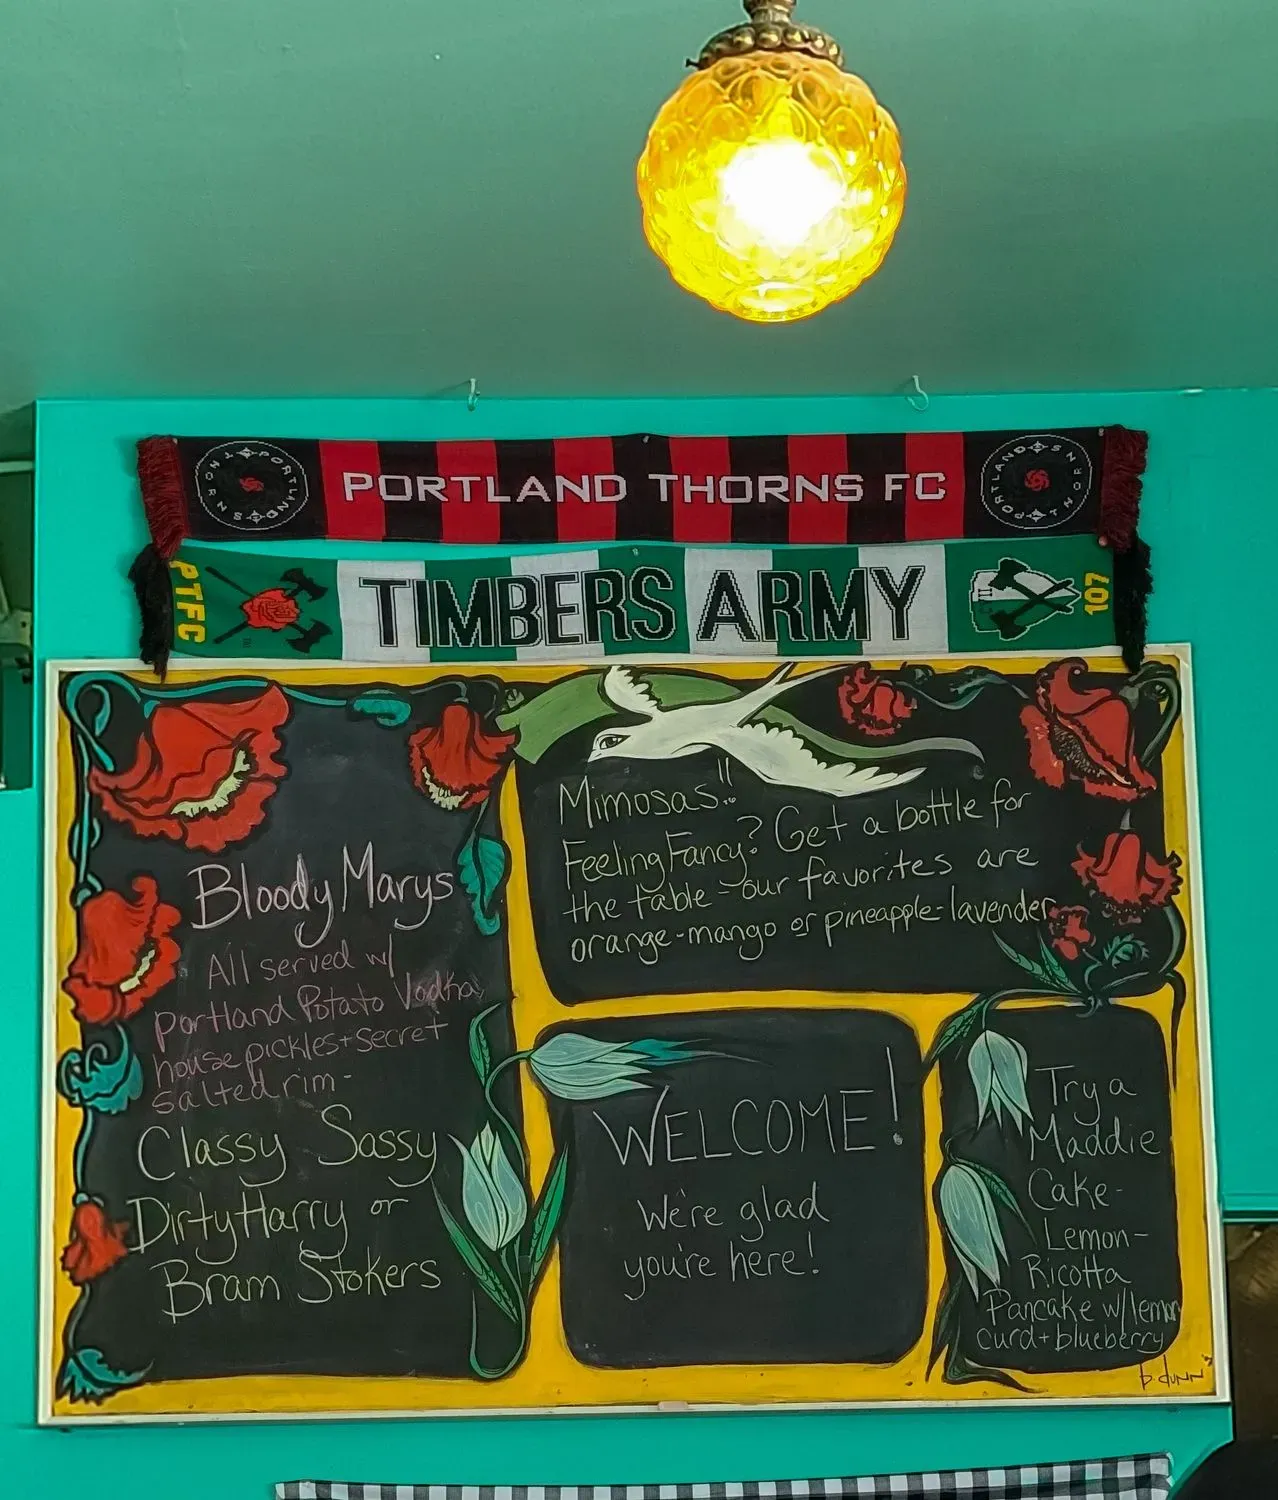 PORTLAND THORNS
PORTLAND THORNS FC
PORTLAND THORNS
PTFC
TIMBERS ARMY
107
Bloody Marys
All served w/
Portland Potato Vodka
house pickles + secret
salted rim -
Classy Sassy
Dirty Harry or
Bram Stokers
Mimosas!!
Feeling Fancy? Get a bottle for
the table - our favorites are
orange-mango or pineapple-lavender
WELCOME!
We're glad
you're here!
Try a
Maddie
Cake -
Lemon-
Ricotta
Pancake w/lemon
curd + blueberry
b. dunn